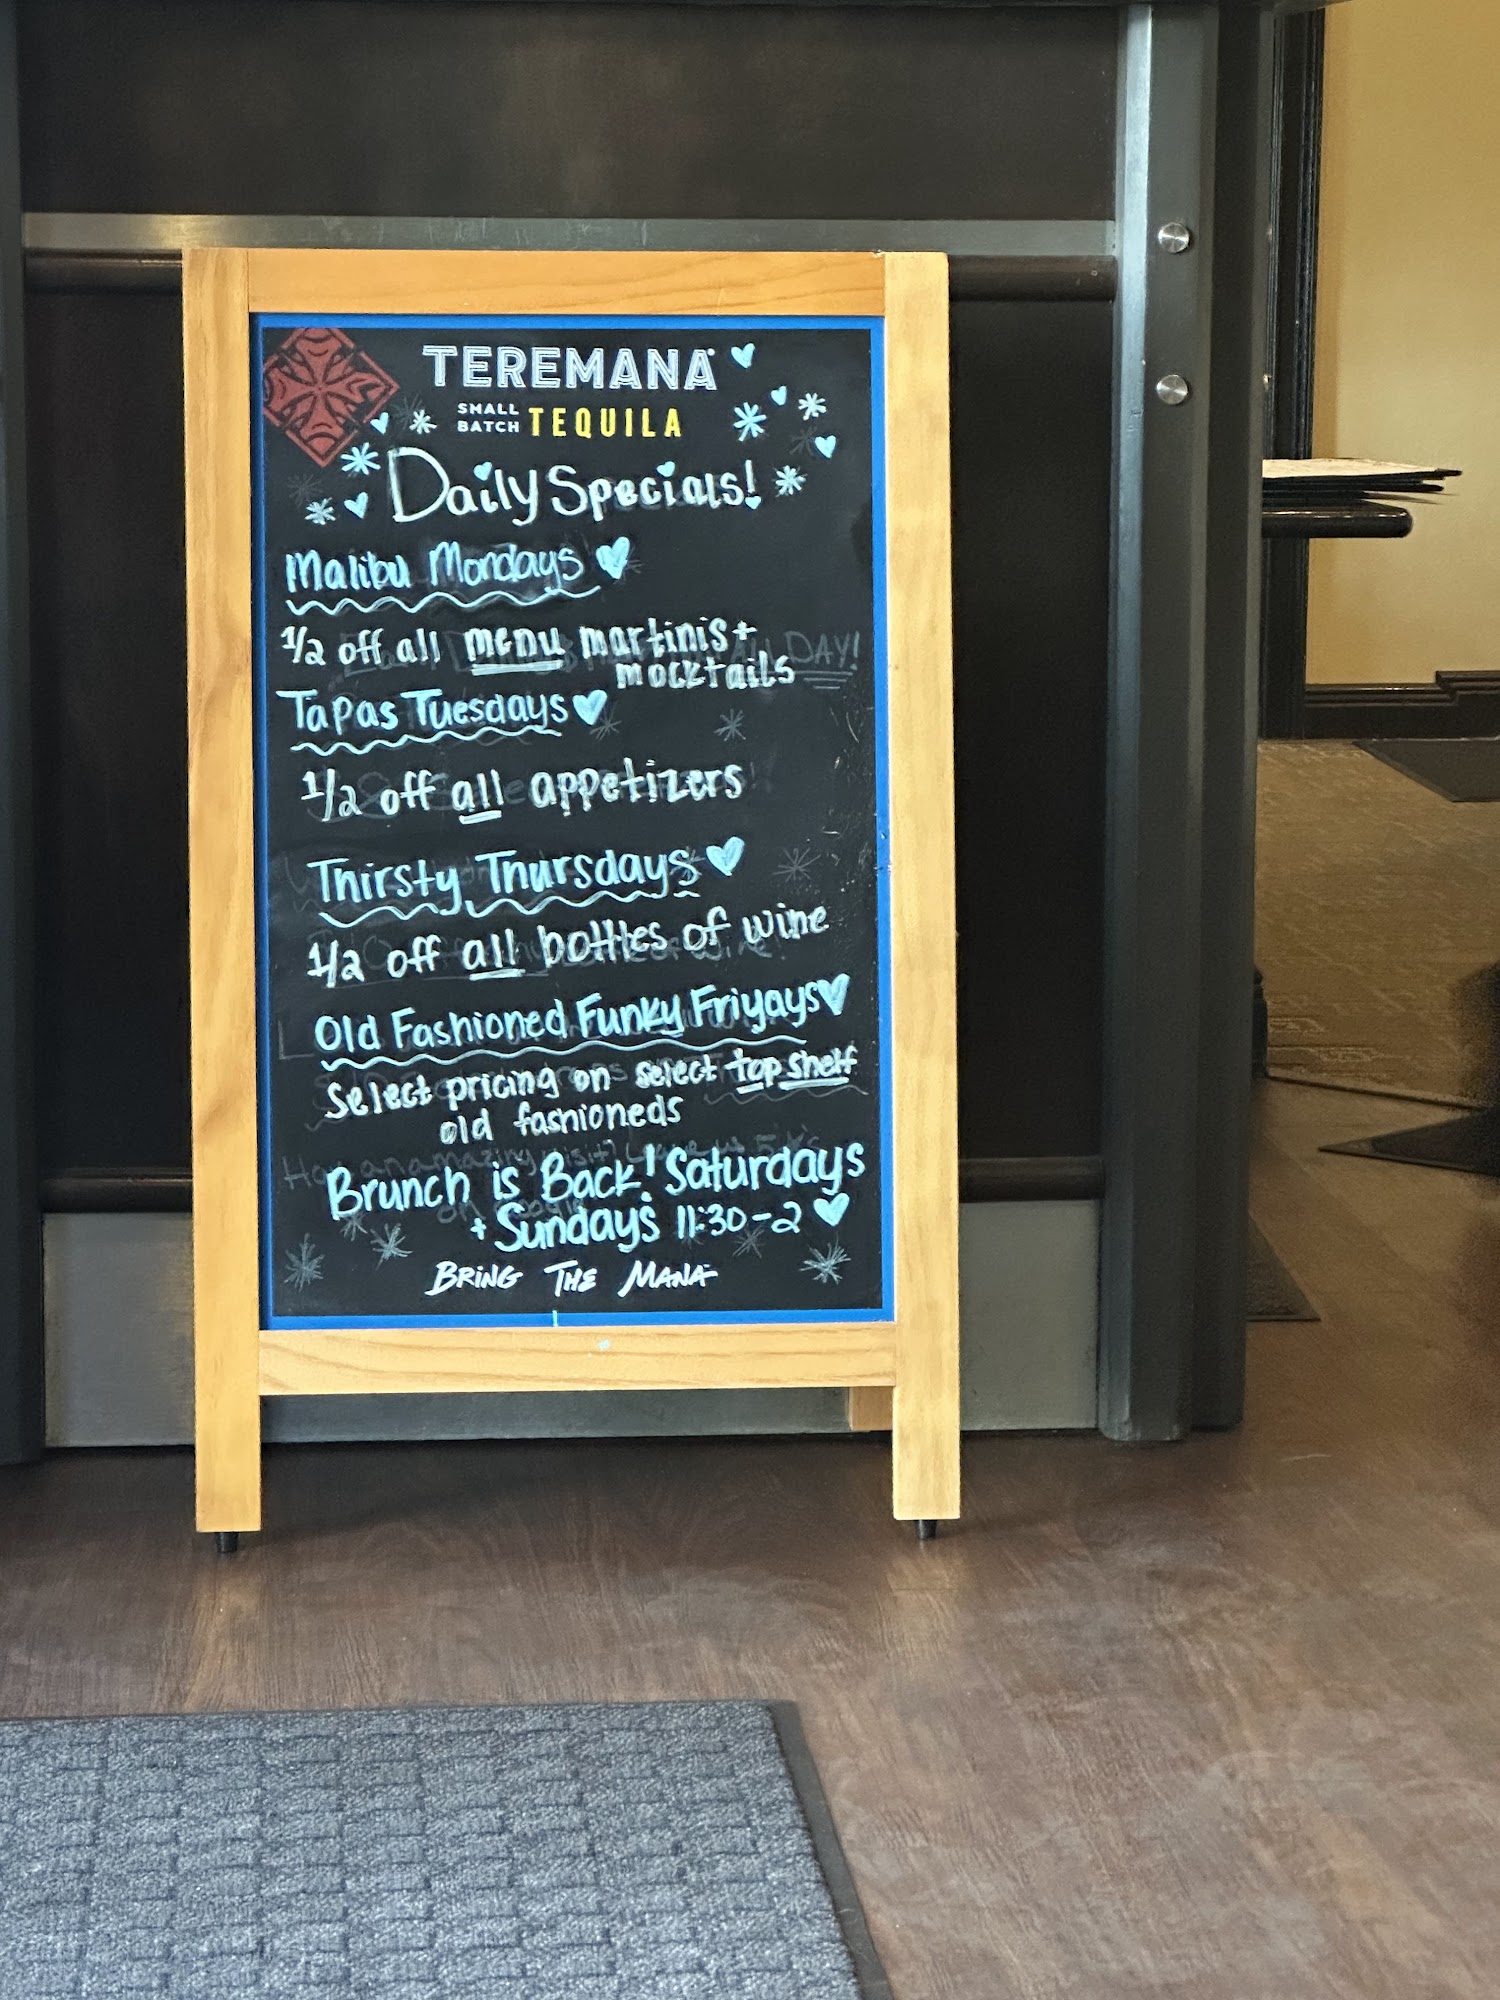 TEREMANA
SMALL BATCH TEQUILA
Daily Specials!
Malibu Mondays
1/2 off all menu martinis +
mocktails
Tapas Tuesdays
1/2 off all appetizers
Thirsty Thursdays
1/2 off all bottles of wine
Old Fashioned Funky Friyays
Select pricing on select top shelf
old fashioneds
Brunch is Back! Saturdays
+ Sundays 11:30-2
BRING THE MANA